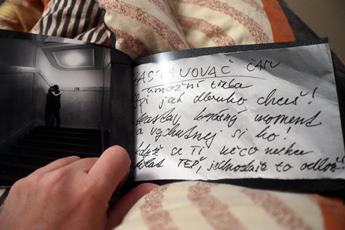 ZASTAVOVAČ ČASU
umožní třeba
spi jak dlouho chceš!
krásný moment
a vychutnej si ho!
když se Ti něco nechce
dělat TEĎ, jednoduše to odlož!